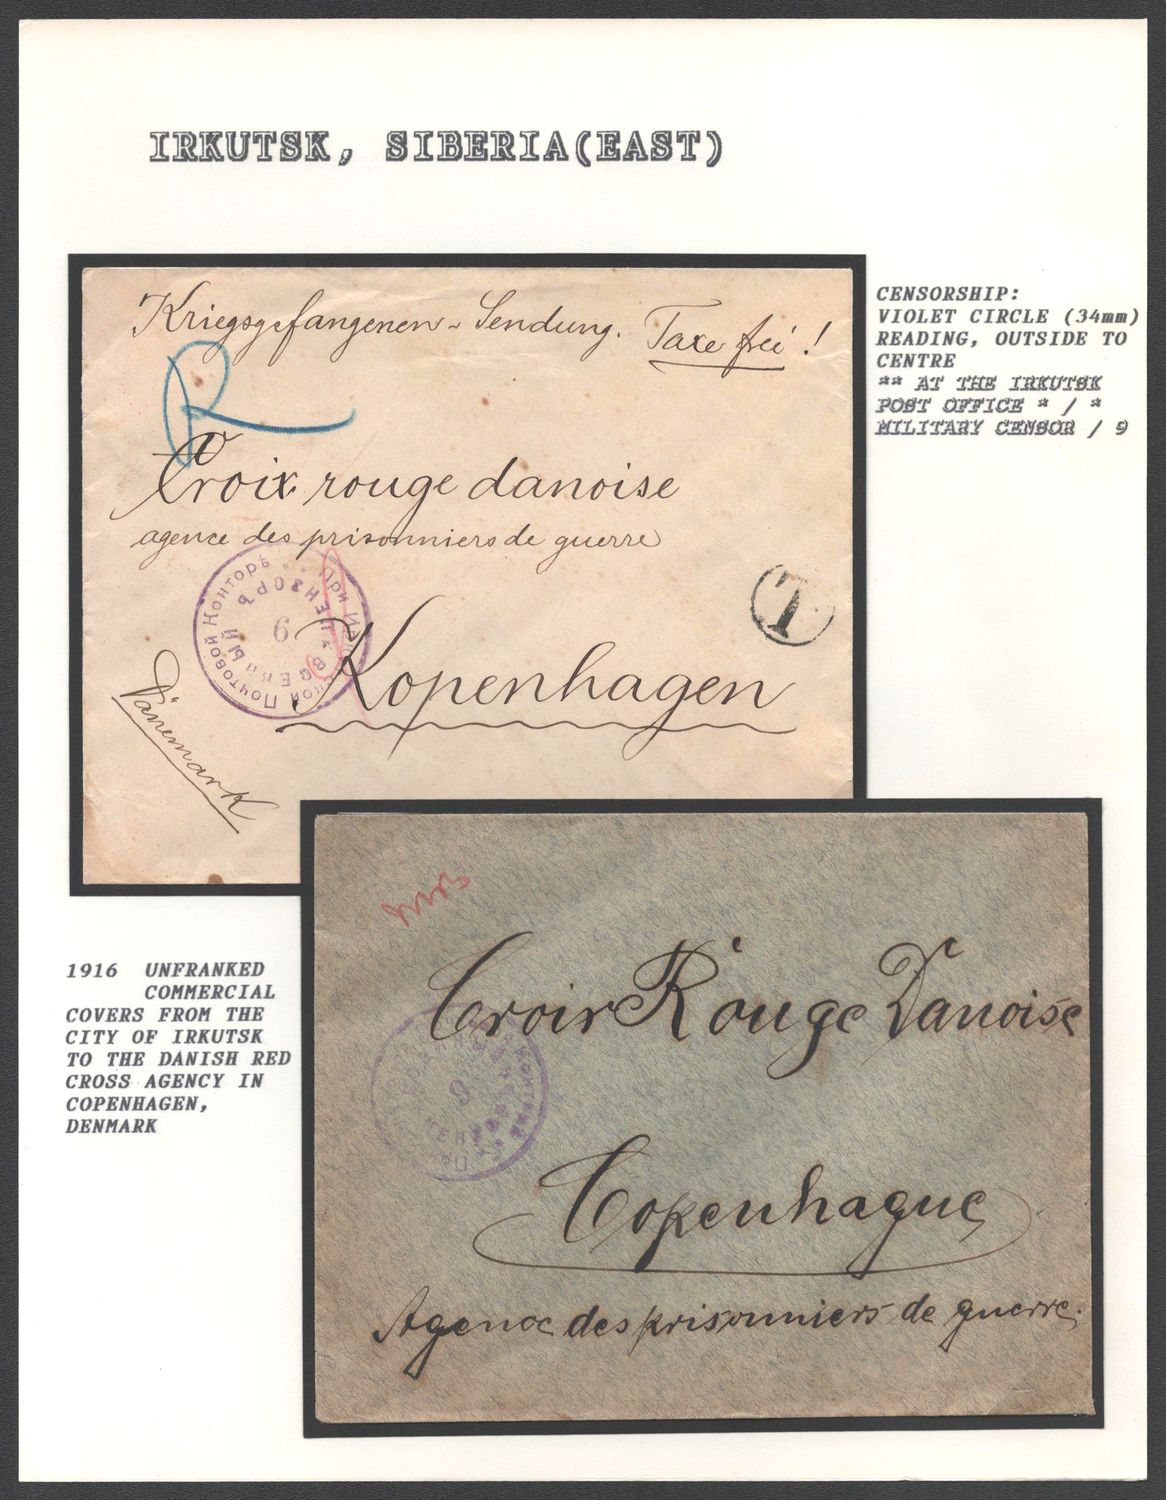 IRKUTSK, SIBERIA(EAST)
CENSORSHIP:
VIOLET CIRCLE (34mm)
READING, OUTSIDE TO
CENTRE
** AT THE IRKUTSK
POST OFFICE * / *
MILITARY CENSOR / 9
Kriegsgefangenen-Sendung. Taxe frei!
R
Croix rouge danoise
agence des prisonniers de guerre
При Почтовой Конторѣ **
* Военный Цензоръ
9
T
Kopenhagen
Dänemark
1916 UNFRANKED
COMMERCIAL
COVERS FROM THE
CITY OF IRKUTSK
TO THE DANISH RED
CROSS AGENCY IN
COPENHAGEN,
DENMARK
Croix Rouge Danoise
9
Copenhague
Agence des prisonniers de guerre.